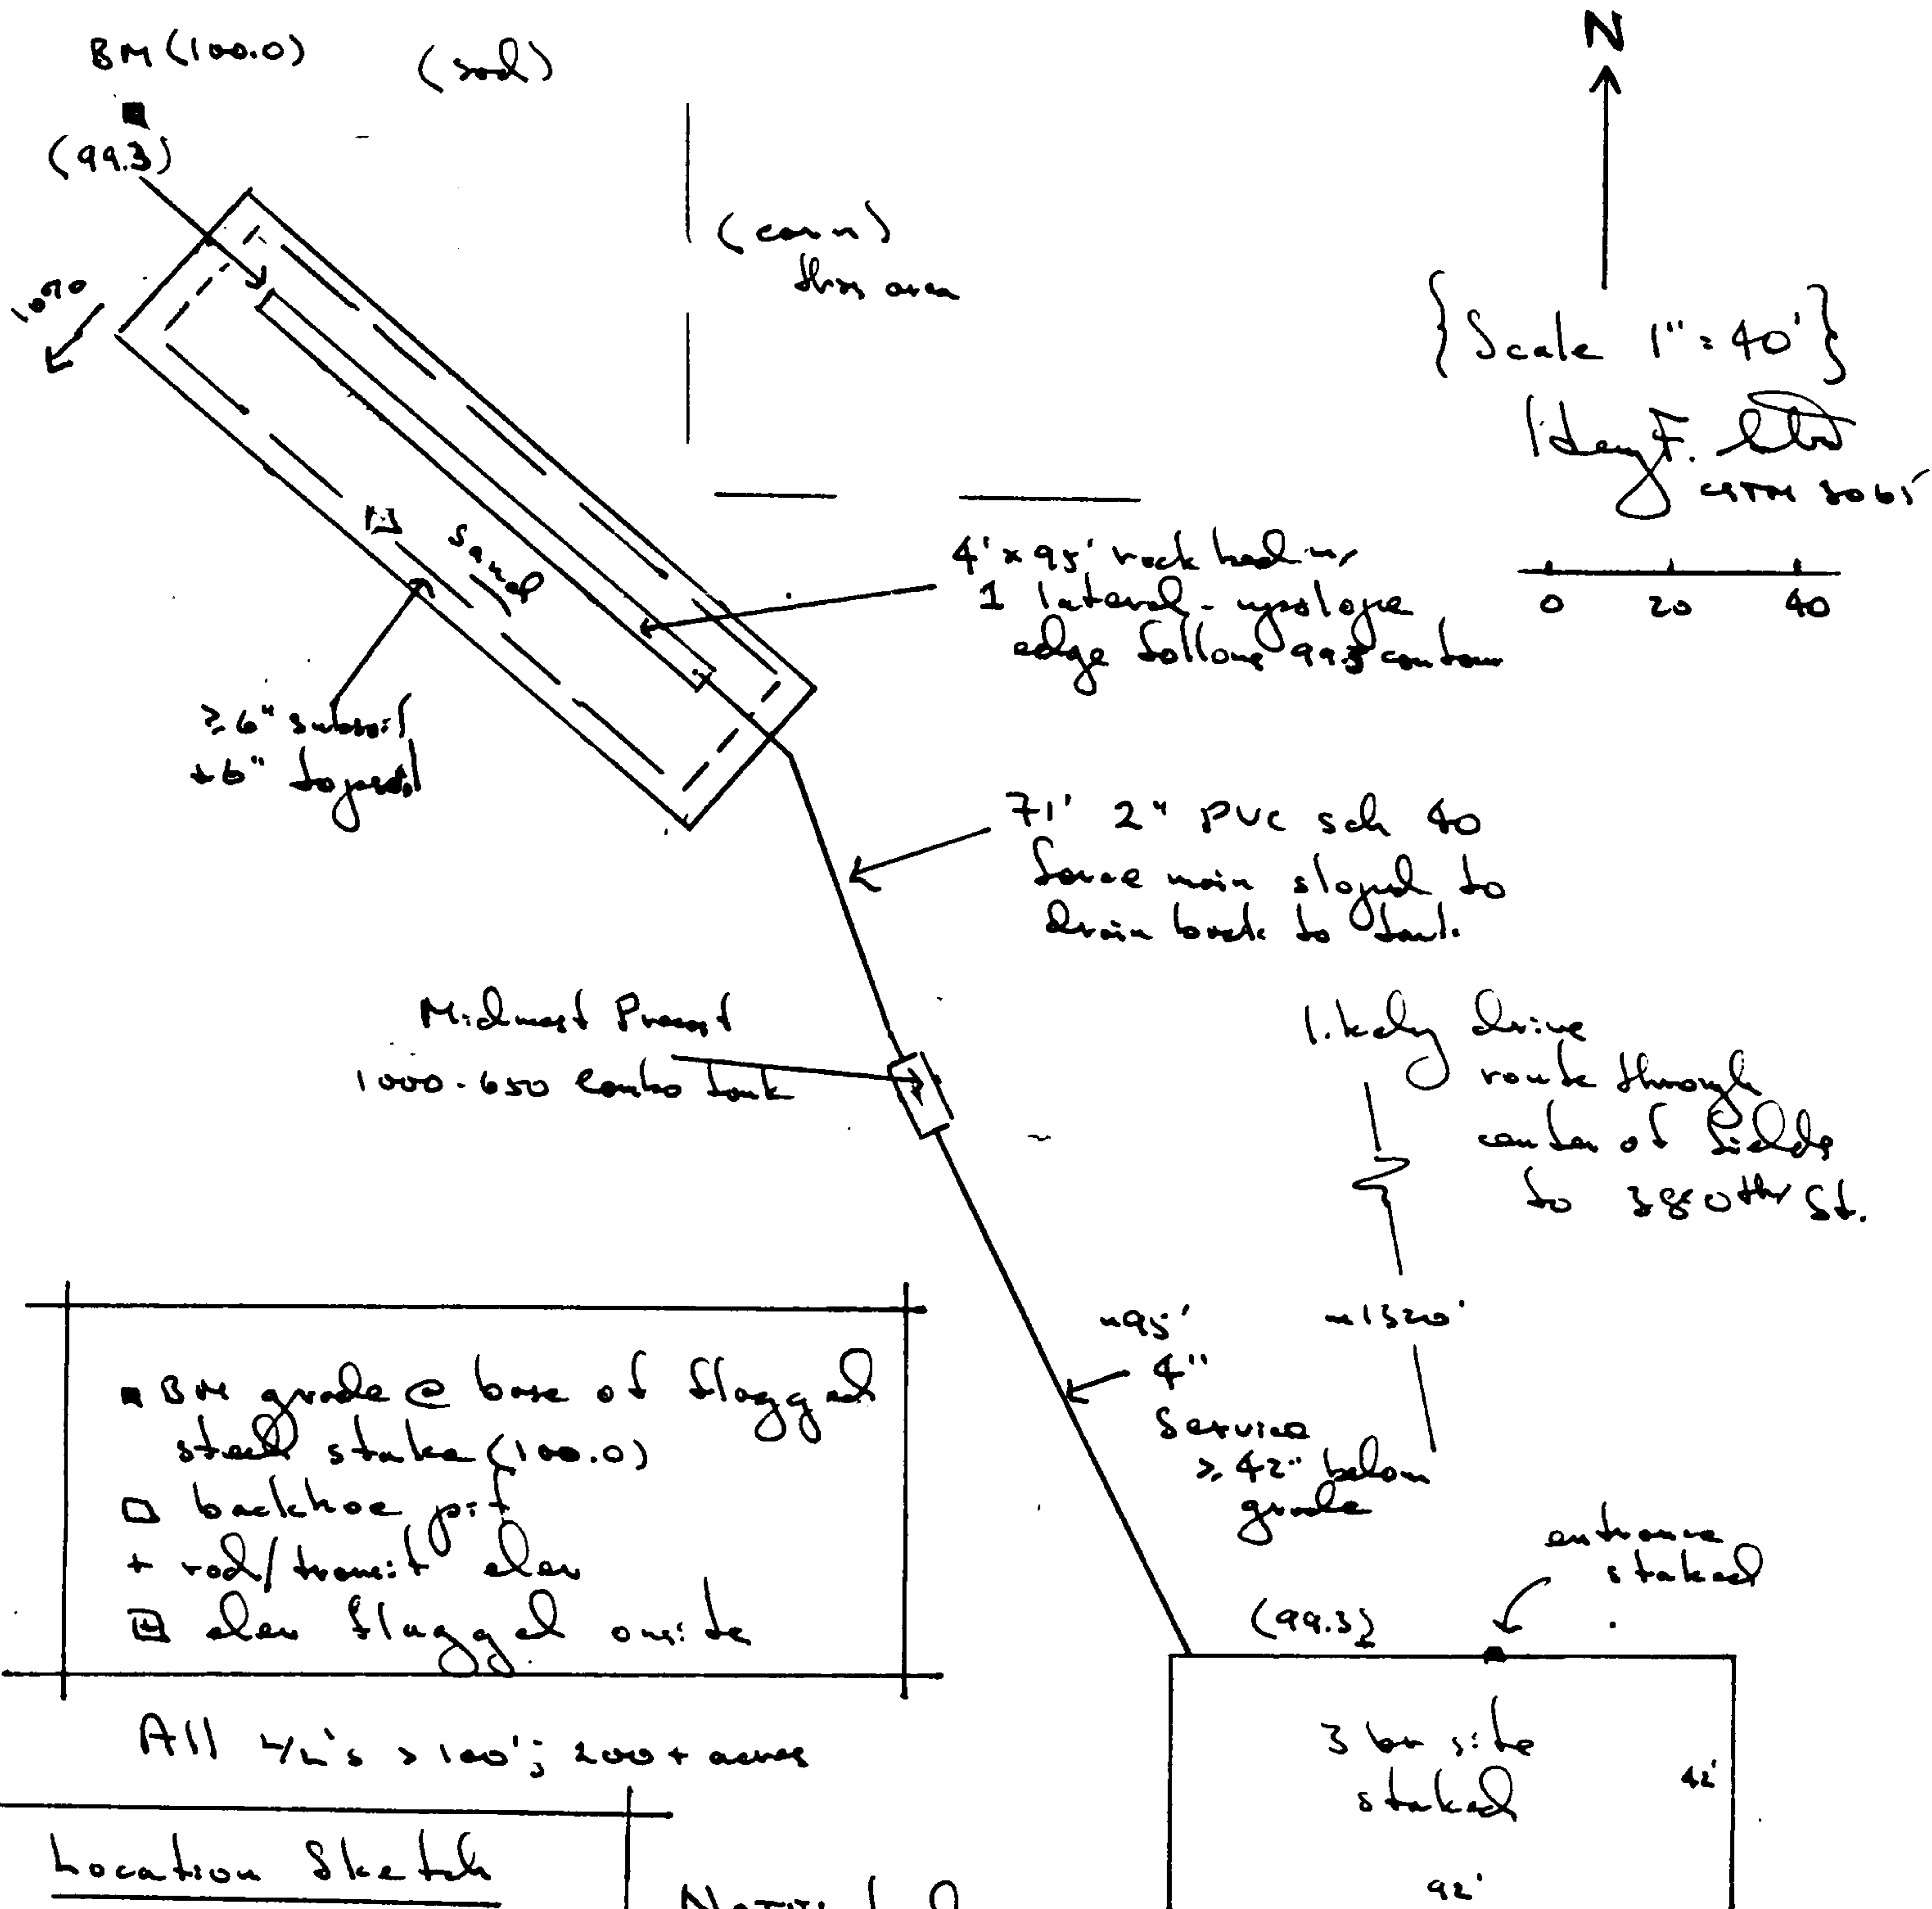 BM (100.0)
(sod)
N
(99.3)
(corn)
this area
10%
{Scale 1" = 40'}
F.
CSTM
0 20 40
4' x 95' rock bed w/
1 lateral - upslope
edge follows 99.3 contour
≥ 6" subsoil
+ 6" topsoil
71' 2" PVC sch 40
force main sloped to
drain back to tank
Midwest Precast
1000-650 Combo tank
likely drive
route through
center of fields
to 380th St.
~1320'
~95'
4"
Service
≥ 42" below
grade
■ BM grade @ base of flagged
steel stake (100.0)
□ backhoe pit
+ rod/transit elev
⊞ elev flagged onsite
entrance
staked
(99.3)
All L/L's > 100'; 200+ acres
3 br site
staked
42'
92'
Location Sketch